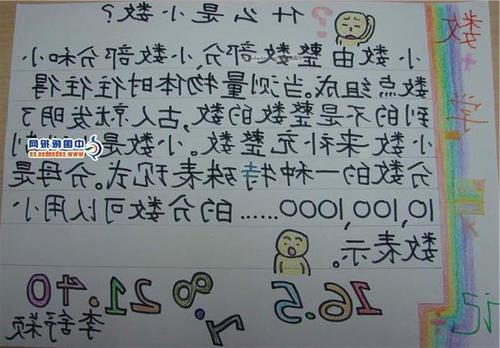 什么是小数？
小数由整数部分,小数部分和小
数点组成。当测量物体时往往得
到的不是整数的数,古人就发明了
小数来补充整数。小数是
分数的一种特殊表现式。分母是
10,100,1000……的分数可以用小
数表示。
16.5
李舒颖
数
学
记